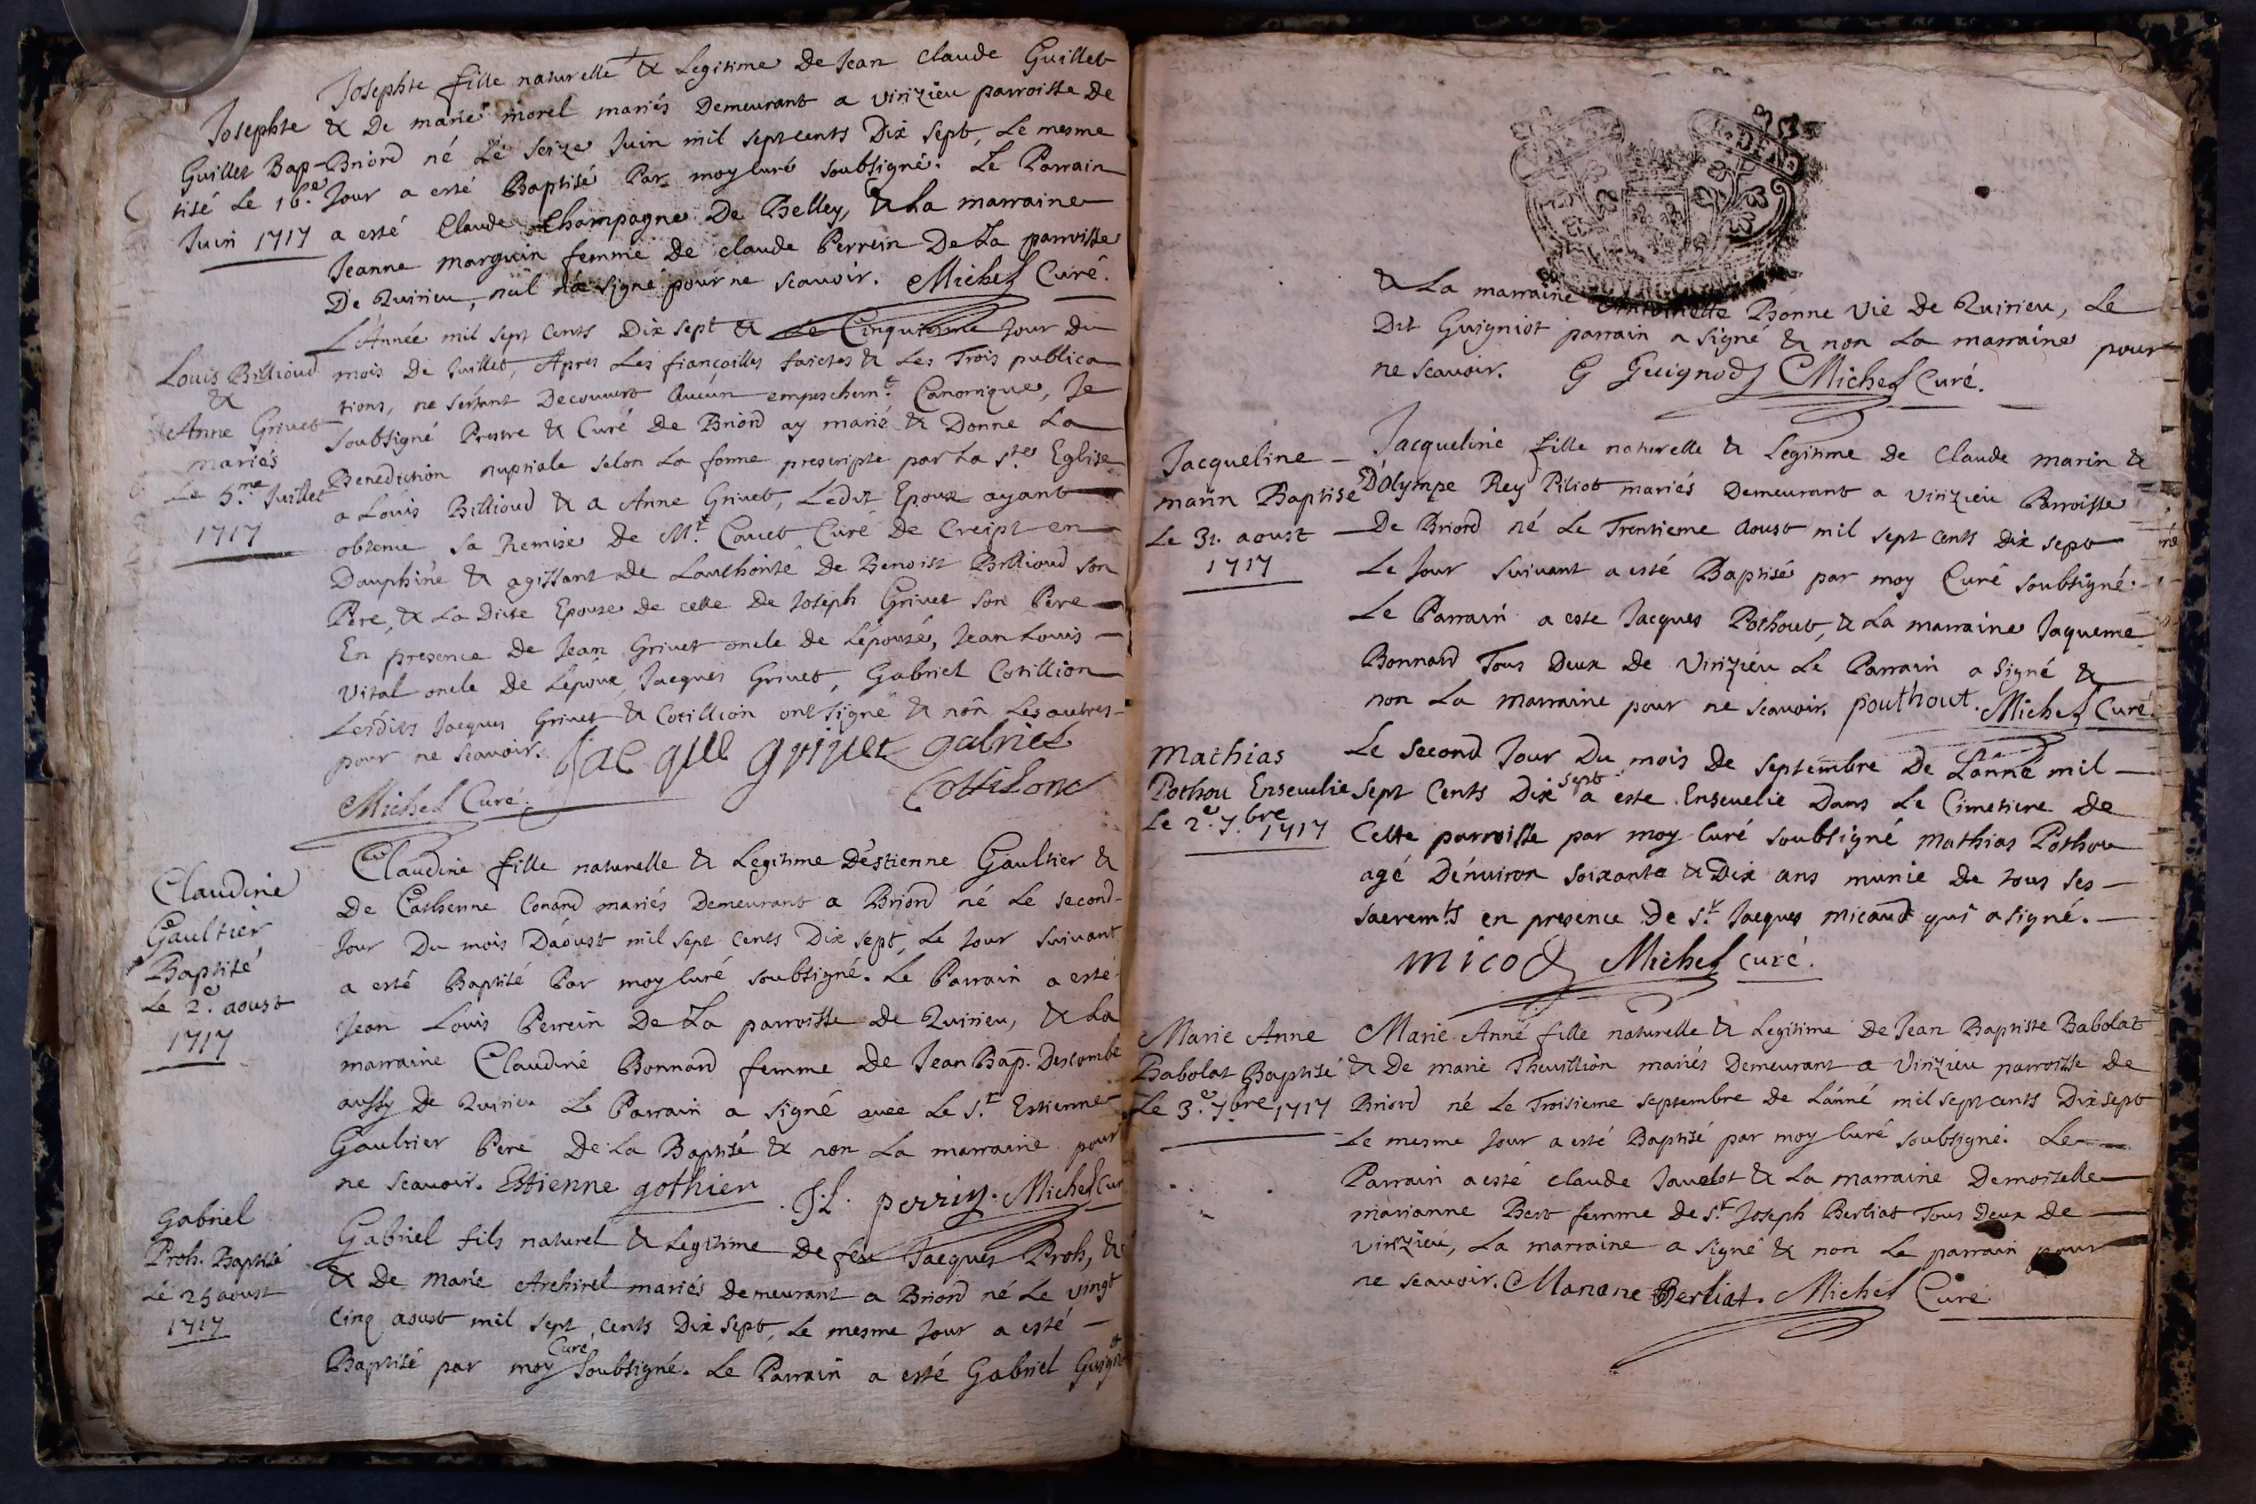 Josephte fille naturelle & Legitime de Jean Claude Guillet
Josephte
Guillet Bap-
tisé Le 16.e
Juin 1717
& De marie morel mariés Demeurant a virizieu parroisse de
Briord né Le seize Juin mil sept cents Dix sept, Le mesme
Jour a esté Baptisé Par moy Curé soubsigné. Le Parrain
a esté Claude Champagne De Belley, & La marraine
Jeanne marguin femme de claude Perrein De La parroisse
De Quirieu, nul n'a signé pour ne scavoir. Michel Curé.
Louis Billioud
&
Anne Grivet
mariés
Le 5.me Juillet
1717
L'Année mil sept Cents Dix sept & Le Cinquieme Jour du
mois De Juillet, Apres Les fiançailles faictes & Les Trois publica
tions, ne s'estant Decouvert Aucun empeschem.t Canonique, Je
soubsigné Prestre & Curé de Briord ay marié & Donné La
Benediction nuptiale selon La forme prescripte par La s.te Eglise
a Louis Billioud & a Anne Grivet, Ledit Epoux ayant
obtenu sa Remise de M.r Couet Curé de Creipt en
Dauphiné & agissant de L'authorité de Benoist Billioud son
Pere, & La Dite Epouse de celle de Joseph Grivet son Pere
En presence de Jean Grivet oncle de L'épouse, Jean Louis
Vital oncle de L'epoux, Jacques Grivet, Gabriel Cotillion
Lesdits Jacques Grivet & Cotillion ont signé & non Les autres
pour ne scavoir. Jacque grivet gabriel
Cottilonc
Michel Curé.
Claudine
Gaultier
Baptisé
Le 2.e aoust
1717
Claudine fille naturelle & Legitime D'éstienne Gaultier &
De Catherine Conard mariés Demeurant a Briord né Le second
Jour Du mois D'aoust mil sept Cents Dix sept, Le Jour suivant
a esté Baptisé Par moy Curé soubsigné. Le Parrain a esté
Jean Louis Perrein De La parroisse de Quirieu, & La
marraine Claudine Bonnard femme de Jean Bap. Descombe
aussy de Quirieu Le Parrain a signé avec Le s.r Estienne
Gaultier Pere De La Baptisé & non La marraine pour
ne scavoir. Estienne gothier J.L. perrin. Michel Cur
Gabriel
Proh. Baptisé
Le 25 aoust
1717
Gabriel fils naturel & Legitime De feu Jacques Proh, &
& De marie Archirel mariés demeurant a Briord né Le vingt
Cinq aoust mil sept cents Dix sept, Le mesme Jour a esté
Curé
Baptisé par moy soubsigné. Le Parrain a esté Gabriel Guigniot
& La marraine Antoinette Bonne vie de Quirieu, Le
Dit Guigniot parrain a signé & non La marraine pour
ne scavoir. G Guignod Michel Curé.
Jacqueline
marin Baptisé
Le 31. aoust
1717
Jacqueline fille naturelle & Legitime de Claude marin &
D'Olympe Rey Piliot mariés Demeurant a virizieu Parroisse
De Briord né Le Trentieme aoust mil sept Cents Dix sept
Le Jour suivant a esté Baptisé par moy Curé soubsigné.
Le Parrain a este Jacques Pothout, & La marraine Jaqueme
Bonnard Tous Deux de Virizieu Le Parrain a signé &
non La marraine pour ne scavoir. pouthout. Michel Curé.
Mathias
Pothou Ensevelie
Le 2.e 7.bre 1717
Le second Jour Du mois de septembre De L'anné mil
sept
sept Cents Dix a este Ensevelie Dans Le Cimetiere de
Cette parroisse par moy Curé soubsigné Mathias Pothou
agé D'énviron soixante & Dix ans munie de tous ses
sacrem.ts en presence De s.r Jacques micaud qui a signé.
micod Michel curé.
Marie Anne
Babolat Baptisé
Le 3.e 7.bre 1717
Marie Anné fille naturelle & Legitime de Jean Baptiste Babolat
& De marie Thevillion mariés Demeurant a Virizieu parroisse de
Briord né Le Troisieme septembre de L'anné mil sept cents Dix sept
Le mesme Jour a esté Baptisé par moy Curé soubsigné. Le
Parrain a esté Claude Javelot & La marraine Demoiselle
marianne Bert femme de s.r Joseph Berliat Tous Deux de
virizieu, La marraine a signé & non Le parrain pour
ne scavoir. Manane Berliat. Michel Curé.